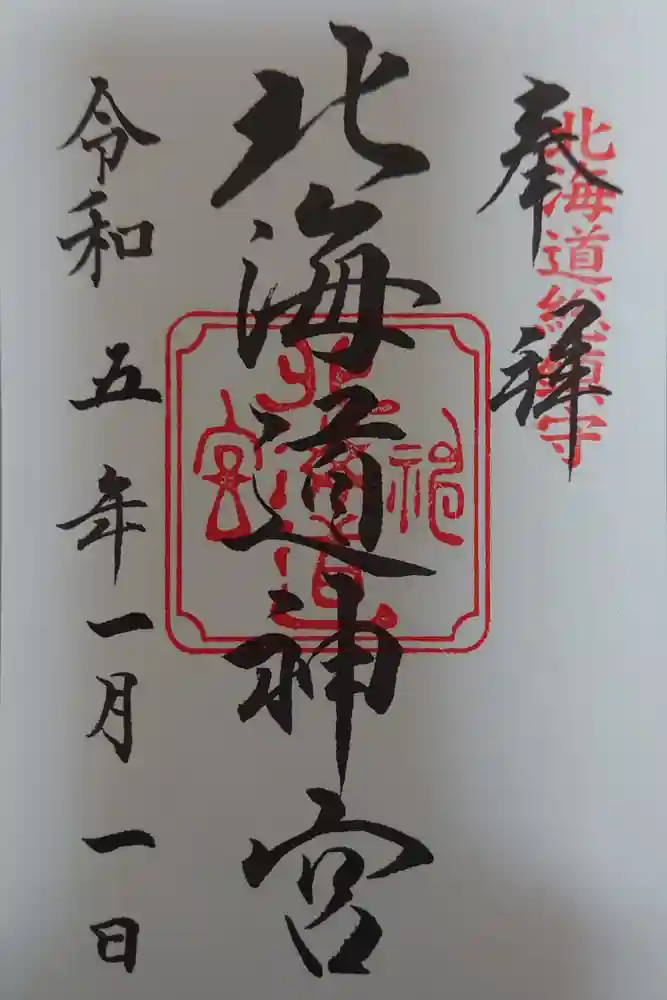 北海道総鎮守
奉拝
北海道神宮
北海道神宮
令和五年一月一日